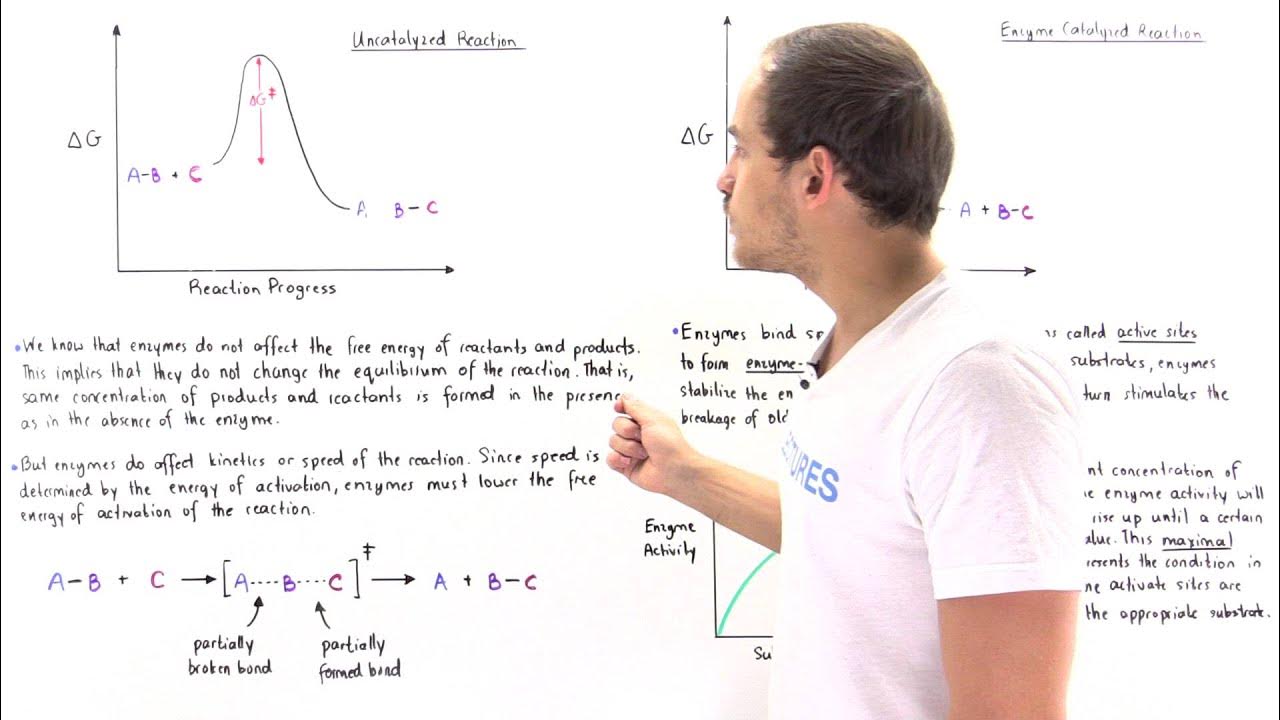 Uncatalyzed Reaction
ΔG
ΔG‡
A-B + C
A, B-C
Reaction Progress
•We know that enzymes do not affect the free energy of reactants and products.
This implies that they do not change the equilibrium of the reaction. That is,
same concentration of products and reactants is formed in the presence
as in the absence of the enzyme.
•But enzymes do affect kinetics or speed of the reaction. Since speed is
determined by the energy of activation, enzymes must lower the free
energy of activation of the reaction.
A-B + C → [A····B····C]‡ → A + B-C
partially
broken bond
partially
formed bond
Enzyme Catalyzed Reaction
ΔG
A + B-C
•Enzymes bind called active sites
to form enzyme- substrates, enzymes
stabilize the turn stimulates the
breakage of
concentration of
enzyme activity will
rise up until a certain
This maximal
the condition in
activate sites are
the appropriate substrate.
Enzyme
Activity
TURES